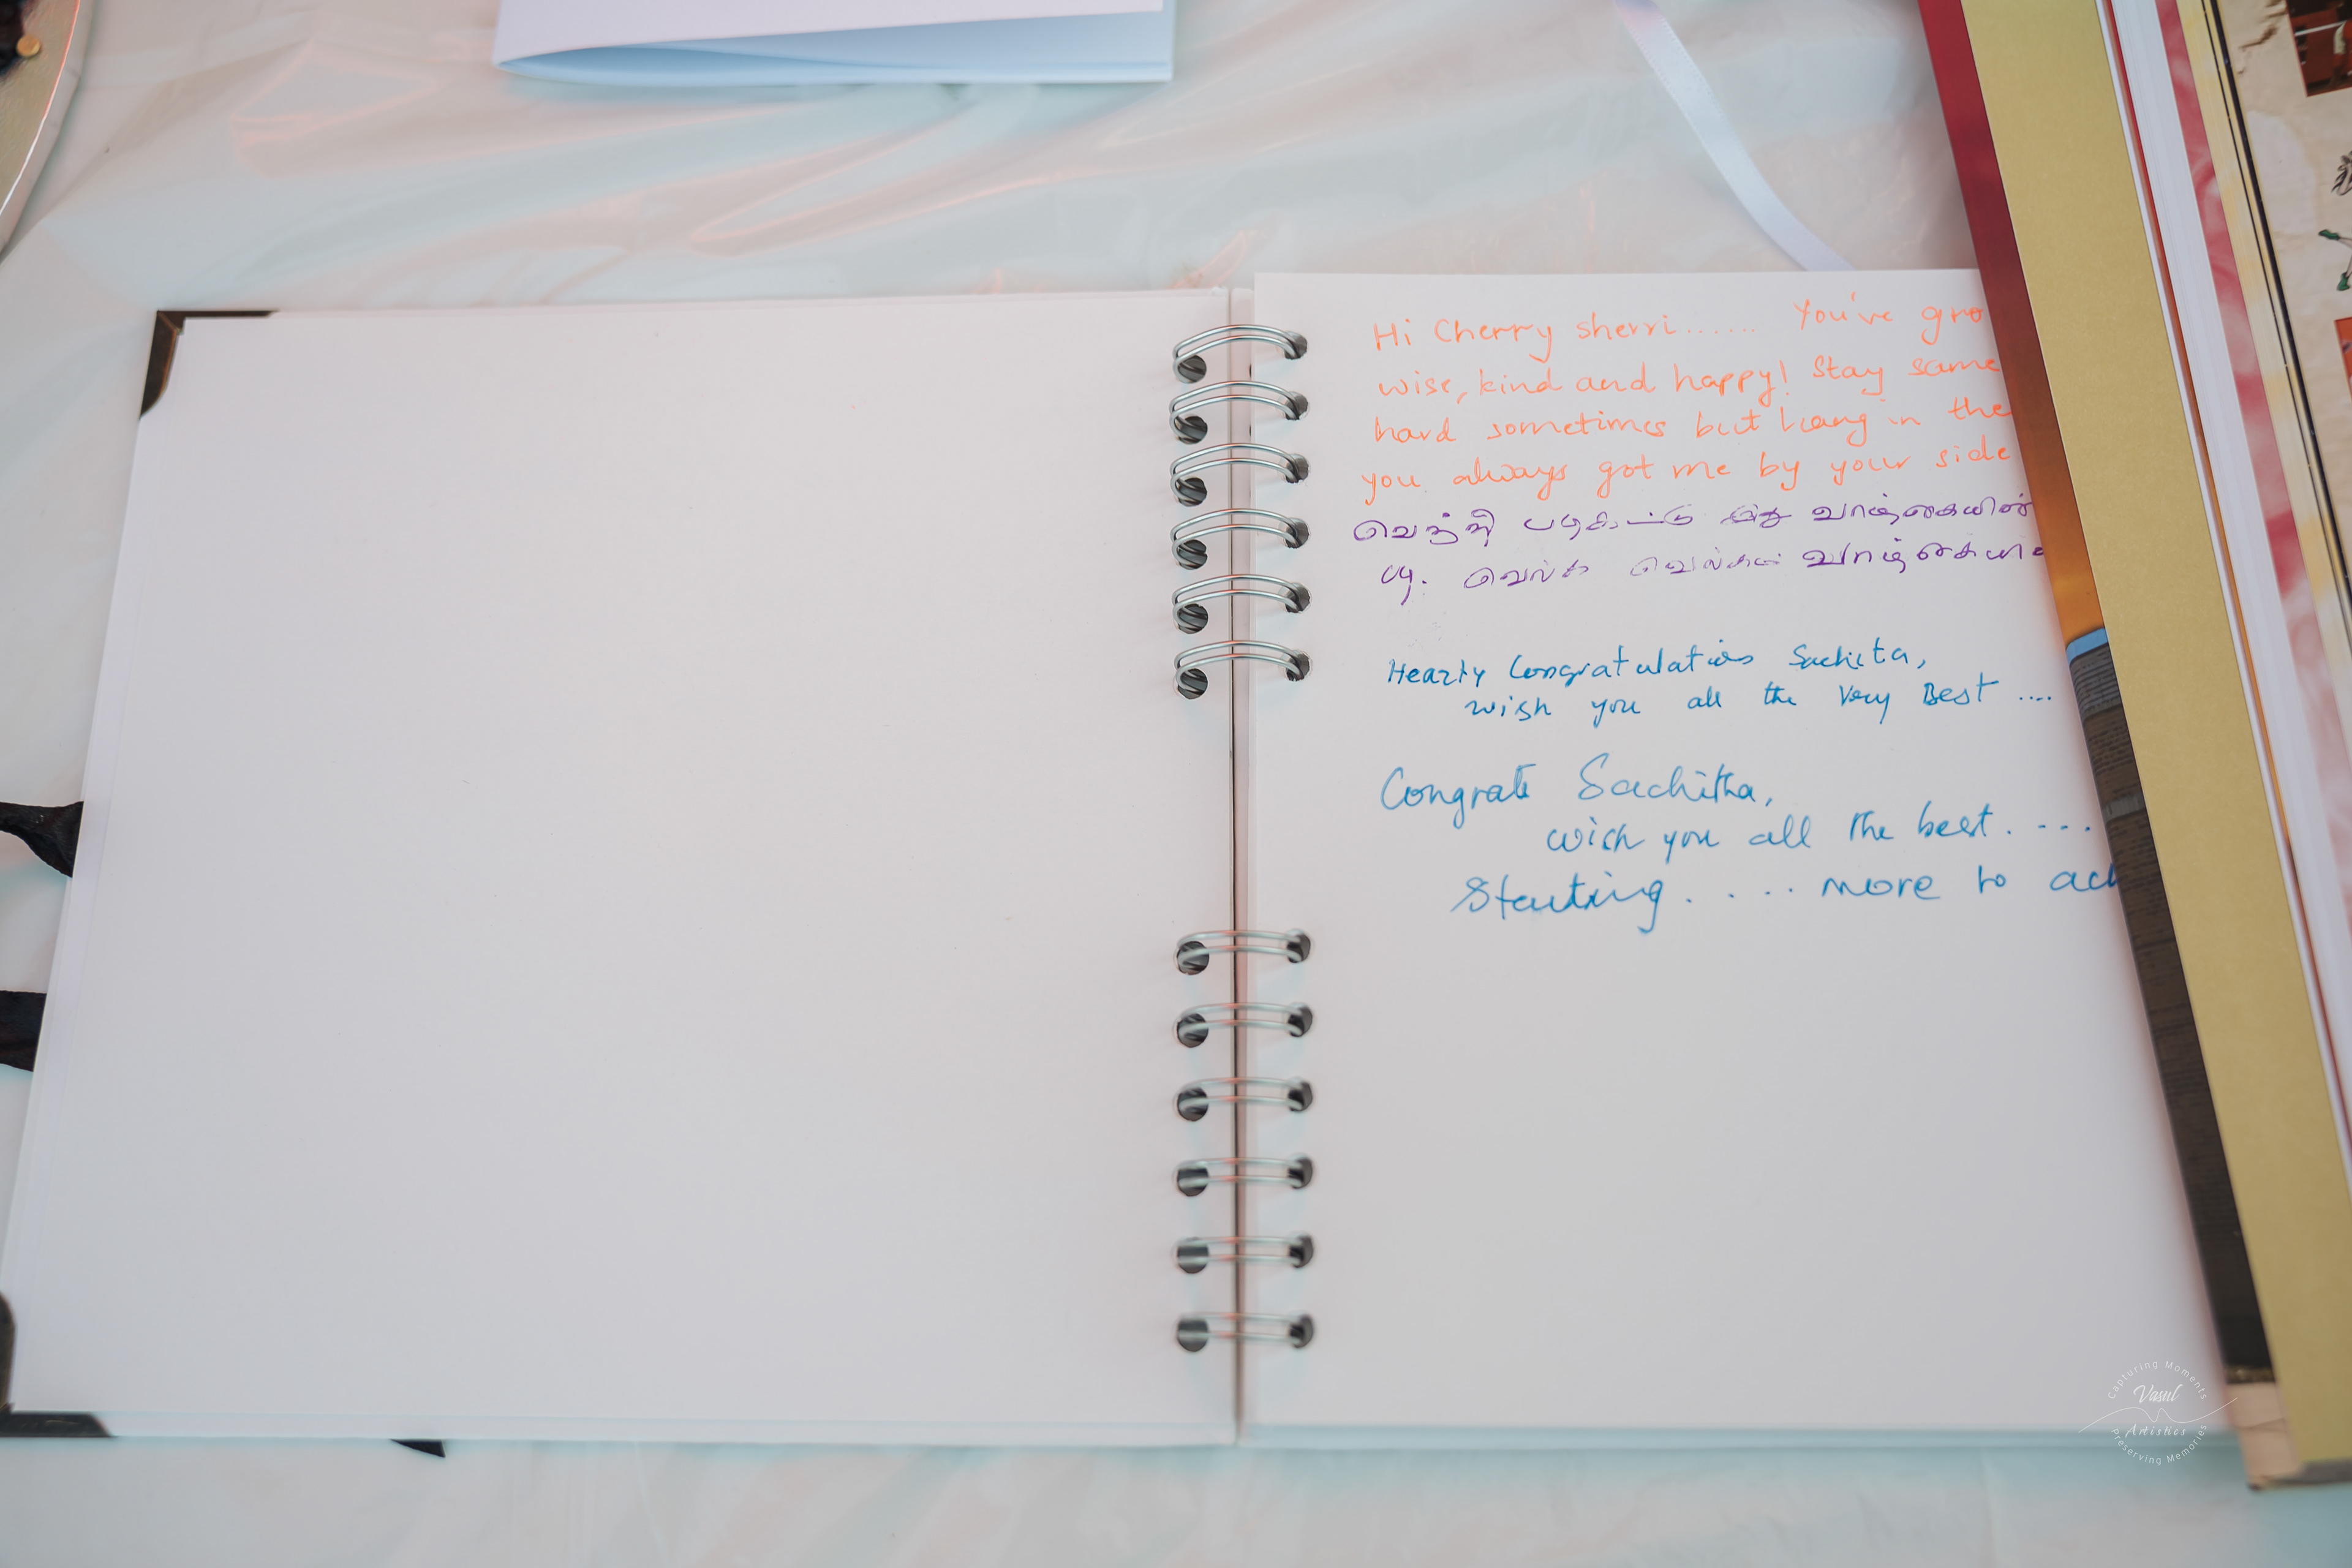 Hi Cherry sherri...... You've gro
wise, kind and happy! Stay same
hard sometimes but hang in the
you always got me by your side
வெற்றி படிகட்டு இது வாழ்கையின்
படி. வெல்க வெல்க வாழ்கையி
Hearty Congratulations Sachita,
wish you all the Very Best ....
Congrats Sachitha,
wish you all the best. ....
Starting. .... more to ach
Capturing Moments
Vasul
Artistics
Preserving Memories